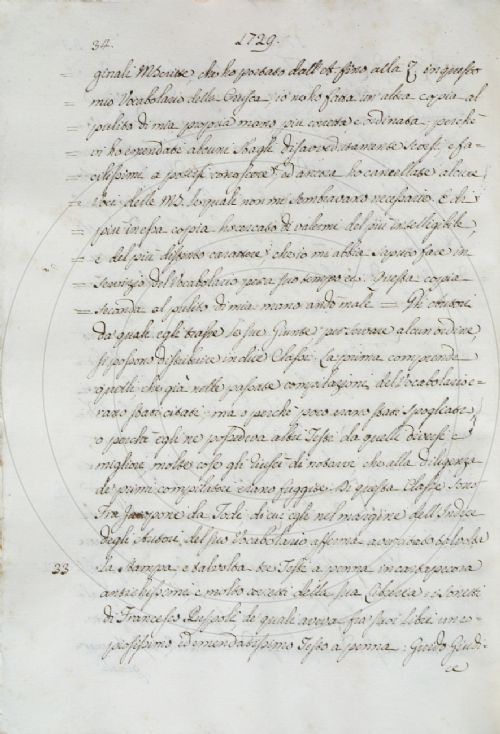 34. 1729.
ginali MScritte che ho portato dall'A fino alla Z in questo
= mio Vocabolario della Crusca, io ne ho fatta un'altra copia al
= pulito di mia propria mano piu corretta e ordinata; perchè
= vi ho emendati alcuni sbagli disavvedutamente scorsi, e fa-
= cilissimi a potersi conoscere, ed ancora ho cancellate alcune
= voci della MS. le quali non mi sembravano necessarie. E di
= più in essa copia ho cercato di valermi del piu intelligibile,
= e del più disteso carattere che io mi abbia saputo fare in
= servizio del Vocabolario per a suo tempo ec. Questa copia
= seconda al pulito di mia mano andò male = Gli Autori
da quali egli trasse le sue Giunte per servare alcun ordine,
si possono distribuire in dieci Classi. La prima comprende
quelli che già nelle passate compilazioni del Vocabolario e-
rano stati citati; ma o perchè poco erano stati spogliati,
o perchè egli ne possedeva altri Testi da quelli diversi e
migliori molte cose gli riuscì di notarvi che alla diligenza
de primi compilatori erano fuggite. Di questa Classe sono
Fra Jacopone da Todi di cui egli nel margine dell'Indice
degli Autori del suo Vocabolario afferma aver citato talvolta
33 la stampa, e talvolta tre Testi a penna in cartapecora
antichissimi e molto corretti della sua Libreria: i Sonetti
di Francesco Ruspoli de quali aveva fra suoi libri un co-
piosissimo ed emendatissimo Testo a penna: Guido Giudi-
ce